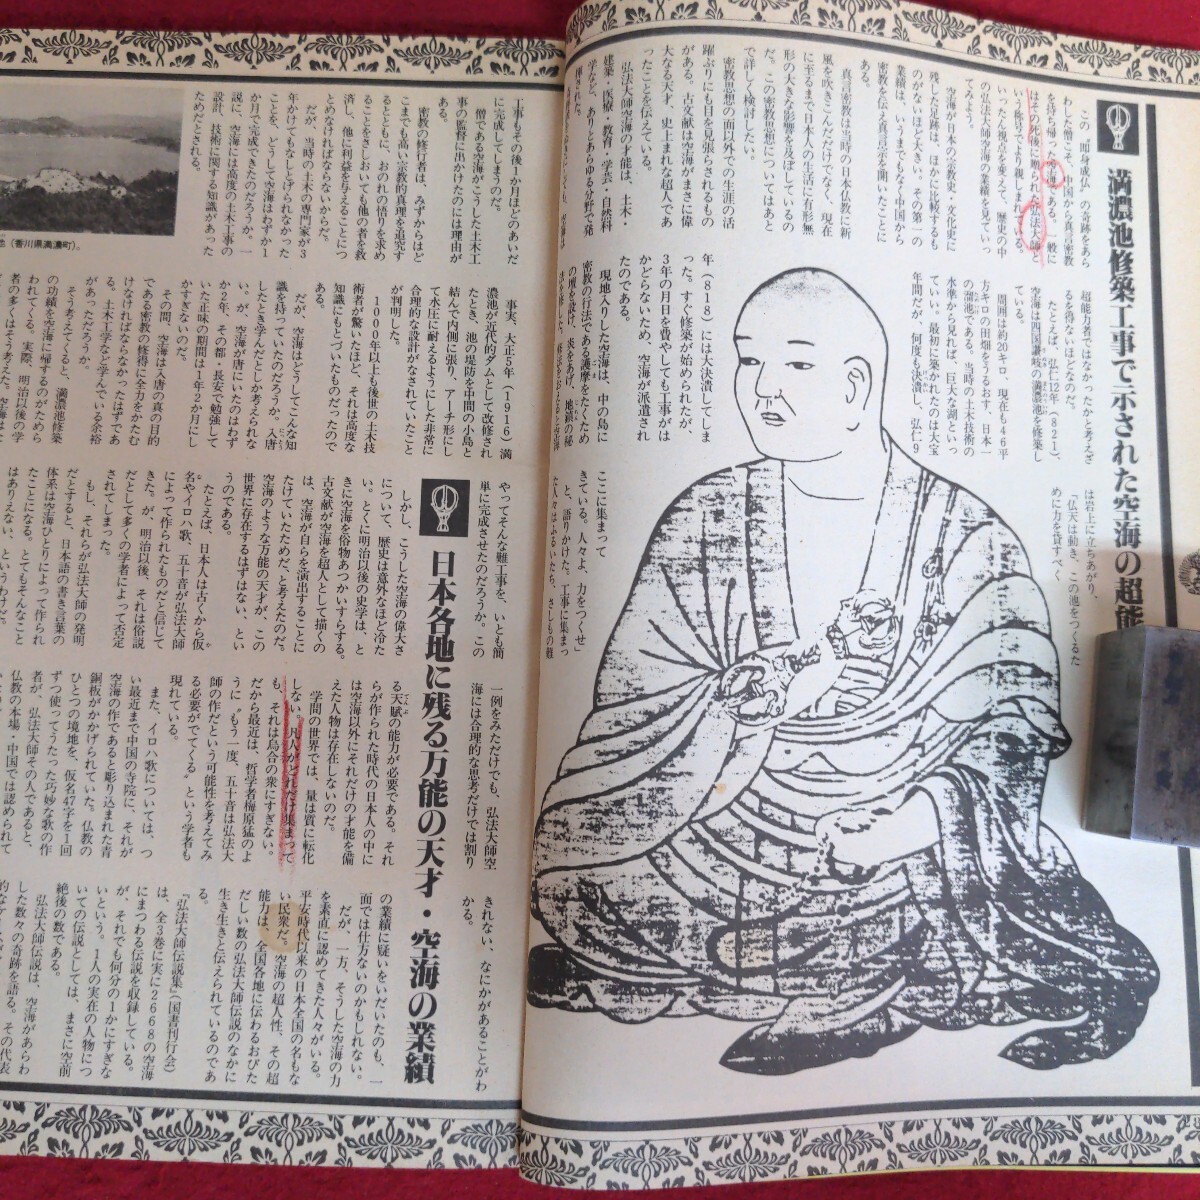 満濃池修築工事で示された空海の超能
この〝即身成仏〟の奇跡をあら
わした僧こそ、中国から真言密教
を持ち帰った空海である。一般に
はその死後に贈られた弘法大師と
いう称号でより親しまれている。
いったん視点を変えて、歴史の中
の弘法大師空海の業績を見ていっ
てみよう。
空海が日本の宗教史・文化史に
残した足跡は、ほかに比較するも
のがないほど大きい。その第一の
業績は、いうまでもなく中国から
密教を伝え真言宗を開いたことに
真言密教は当時の日本仏教に新
風を吹きこんだだけでなく、現在
に至るまで日本人の生活に有形無
形の大きな影響を及ぼしているの
だ。この密教思想についてはあと
で詳しく検討したい。
密教思想の面以外での生涯の活
躍ぶりにも目を見張らされるもの
がある。古文献は空海がまさに偉
大なる天才、史上まれな超人であ
ったことを伝えている。
弘法大師空海の才能は、土木・
建築・医療・教育・学芸・自然科
学など、ありとあらゆる分野で発
揮された。
超能力者ではなかったかと考えざ
るを得ないほどなのだ。
たとえば、弘仁12年(821)、
空海は四国讃岐の満濃池を修築し
ている。
周囲は約20キロ、現在も46平
方キロの田畑をうるおす、日本一
の溜池である。当時の土木技術の
水準から見れば、巨大な湖といっ
ていい。最初に築かれたのは大宝
年間だが、何度も決潰し、弘仁9
年(818)には大決潰してしま
った。すぐ修築が始められたが、
3年の月日を費やしても工事がは
かどらないため、空海が派遣され
たのである。
現地入りした空海は、中の島に
密教の行法である護摩をたくため
の壇を設け、炎をあげ、地鎮の秘
は岩上に立ちあがり、
「仏天は動き、この池をつくるた
めに力を貸すべく
ここに集まって
きている。人々よ、力をつくせ」
と、語りかけた。工事に集まっ
た人々はふるいたち、さしもの難
工事もその後1か月ほどのあいだ
に完成してしまうのだ。
僧である空海がこうした土木工
事の監督に出かけたのには理由が
ある。
密教の修行者は、みずからはど
こまでも高い宗教的真理を追究す
るとともに、おのれの悟りを求め
ることをさしおいても他の者を救
済し、他に利益を与えることにつ
とめなければならないからだ。
だが、当時の土木の専門家が3
年かけてもなしとげられなかった
ことを、どうして空海はわずか1
か月で完成できたのだろうか。一
説に、空海には高度の土木工事の
設計、技術に関する知識があった
ためだとされる。
池(香川県満濃町)。
事実、大正5年(1916)満
濃池が近代的ダムとして改修され
たとき、池の堤防を中間の小島と
結んで内側に張り、アーチ形にし
て水圧に耐えるようにした非常に
合理的な設計がなされていたこと
が判明した。
1000年以上も後世の土木技
術者が驚いたほど、それは高度な
知識にもとづいたものだったので
ある。
だが、空海はどうしてこんな知
識を持っていたのだろうか。入唐
したとき学んだとしか考えられな
い。が、空海が唐にいたのはわず
か2年、その都、長安で勉強して
いた正味の期間は1年2か月にし
かすぎないのだ。
その間、空海は入唐の真の目的
である密教の修得に全力をかたむ
けなければならなかったはずであ
る。土木工学など学んでいる余裕
があっただろうか。
そう考えてくると、満濃池修築
の功績を空海に帰するのがためら
われてくる。実際、明治以後の学
者の多くはそう考えた。
やってそんな難工事を、いとも簡
単に完成させたのだろうか。この
一例をみただけでも、弘法大師空
海には合理的な思考だけでは割り
きれない、なにかがあることがわ
かる。
日本各地に残る万能の天才・空海の業績
しかし、こうした空海の偉大さ
について、歴史は意外なほど冷た
い。とくに明治以後の史学は、と
きに空海を俗物あつかいすらする。
古文献が空海を超人として描くの
は、空海が自らを演出することに
たけていたためだ、と考えたのだ。
空海のような万能の天才が、この
世界に存在するはずはない、とい
うのである。
たとえば、日本人は古くから仮
名やイロハ歌、五十音が弘法大師
によって作られたものだと信じて
きた。が、明治以後、それは俗説
だとして多くの学者によって否定
されてしまった。
もし、それらが弘法大師の発明
だとすると、日本語の書き言葉の
体系は空海ひとりによって作られ
たことになる。とてもそんなこと
はありえない、というわけだ。
る天賦の能力が必要である。それ
らが作られた時代の日本人の中に
は空海以外にそれだけの才能を備
えた人物は存在しないのだ。
学問の世界では、量は質に転化
しない。凡人がどれだけ集まって
も、それは烏合の衆にすぎない。
だから最近は、哲学者梅原猛のよ
うに〝もう一度、五十音は弘法大
師の作だという可能性を考えてみ
る必要がでてくる〟という学者も
現れている。
また、イロハ歌については、つ
い最近まで中国の寺院に、それが
空海の作であると彫り込まれた青
銅板がかかげられていた。仏教の
ひとつの境地を、仮名47字を1回
ずつ使ってうたった巧妙な歌の作
者が、弘法大師その人であると、
仏教の本場・中国では認められて
の業績に疑いをいだいたのも、一
面では仕方ないのかもしれない。
だが、一方、そうした空海の力
を素直に認めてきた人々がいる。
平安時代以来の日本全国の名もな
い民衆だ。空海の超人性、その超
能力は、全国各地に伝わるおびた
だしい数の弘法大師伝説のなかに
生き生きと伝えられているのであ
る。
『弘法大師伝説集』(国書刊行会)
は、全3巻に実に2668の空海
にまつわる伝説を収録している。
が、それでも何分の1かにすぎな
いという。1人の実在の人物につ
いての伝説としては、まさに空前
絶後の数である。
弘法大師伝説は、空海があらわ
した数々の奇跡を語る。その代表